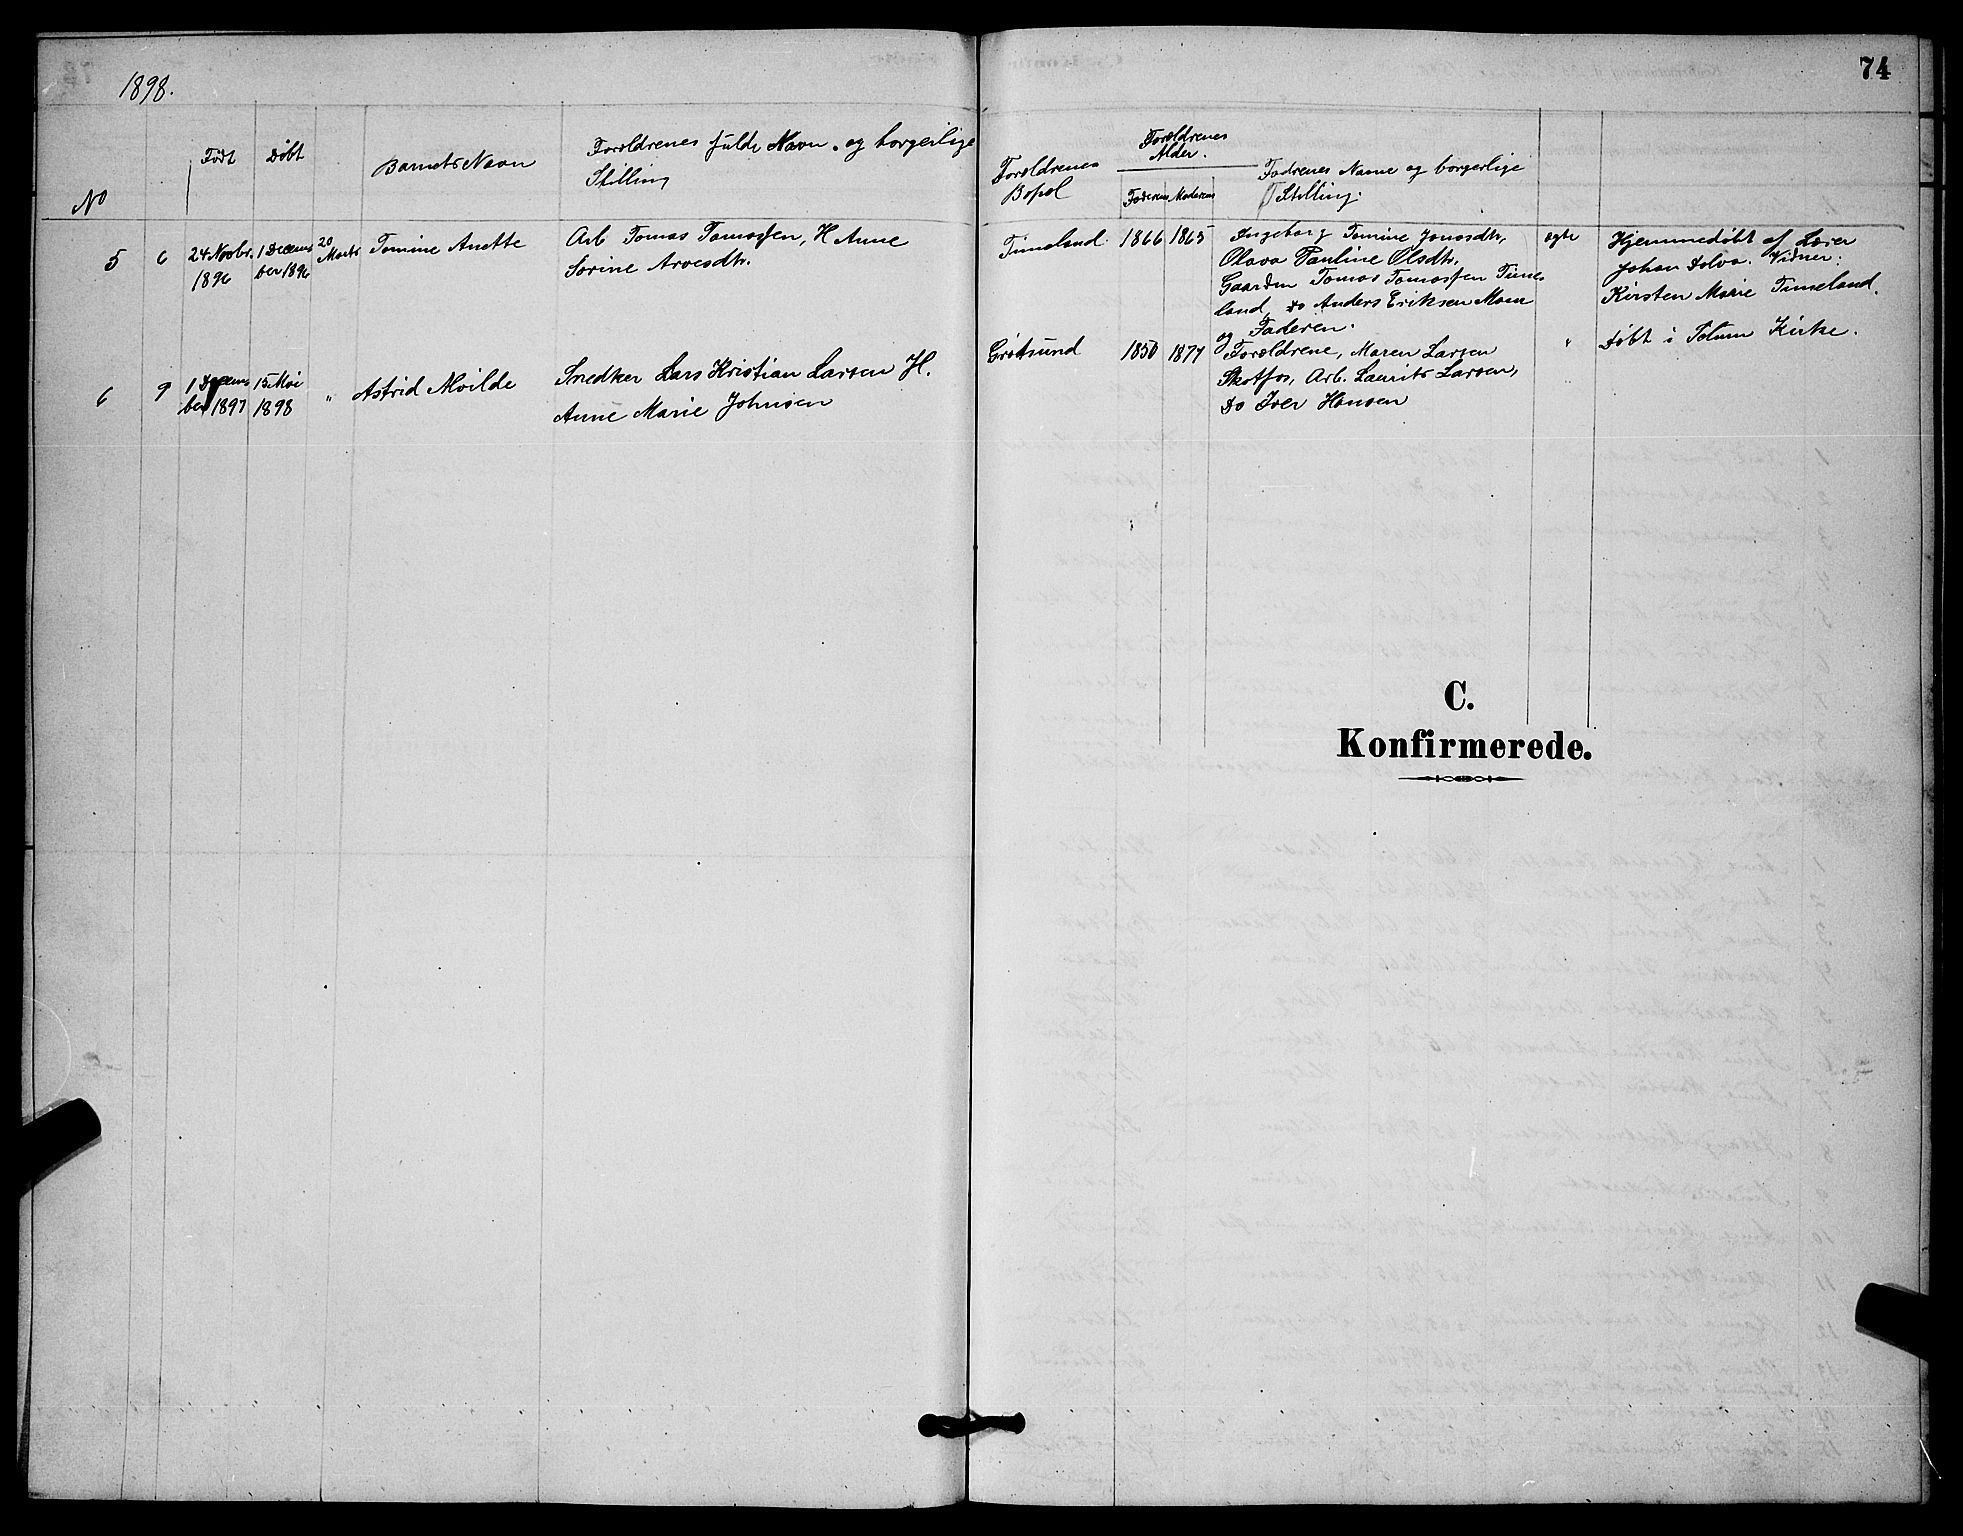 1898.
74
No
Født
Døbt
Barnets Navn
Forældrenes fulde Navn og borgerlige
Stilling
Forældrenes
Bopæl
Forældrenes
Alder.
Faderens Moderens
Fadrenes Navne og borgerlige
Stilling.
5 6 24 Novbr. 1 Decem 20 Tomine Anette Arb Tomas Tomassen, H Anne
1896 ber 1896 Marts Sorine Arvesdtr.
Timeland. 1866 1865 Ingeborg Tomine Jonasdtr, ægte Hjemmedøbt af Lærer
Olava Pauline Olsdtr. Johan Dolva. Vidner:
Gaardm Tomas Tomassen Time Kirsten Marie Timeland.
land, Do Anders Eriksen Moen
og Faderen.
6 9 1 Decem 15 Mai " Astrid Alvilde Snedker Lars Kristian Larsen H.
ber 1897 1898 Anne Marie Johnsen
Grøtsund 1850 1874 Forældrene, Maren Larsen " Døbt i Solum Kirke.
Skotfos, Arb. Laurits Larsen, "
Do Iver Hansen
C.
Konfirmerede.